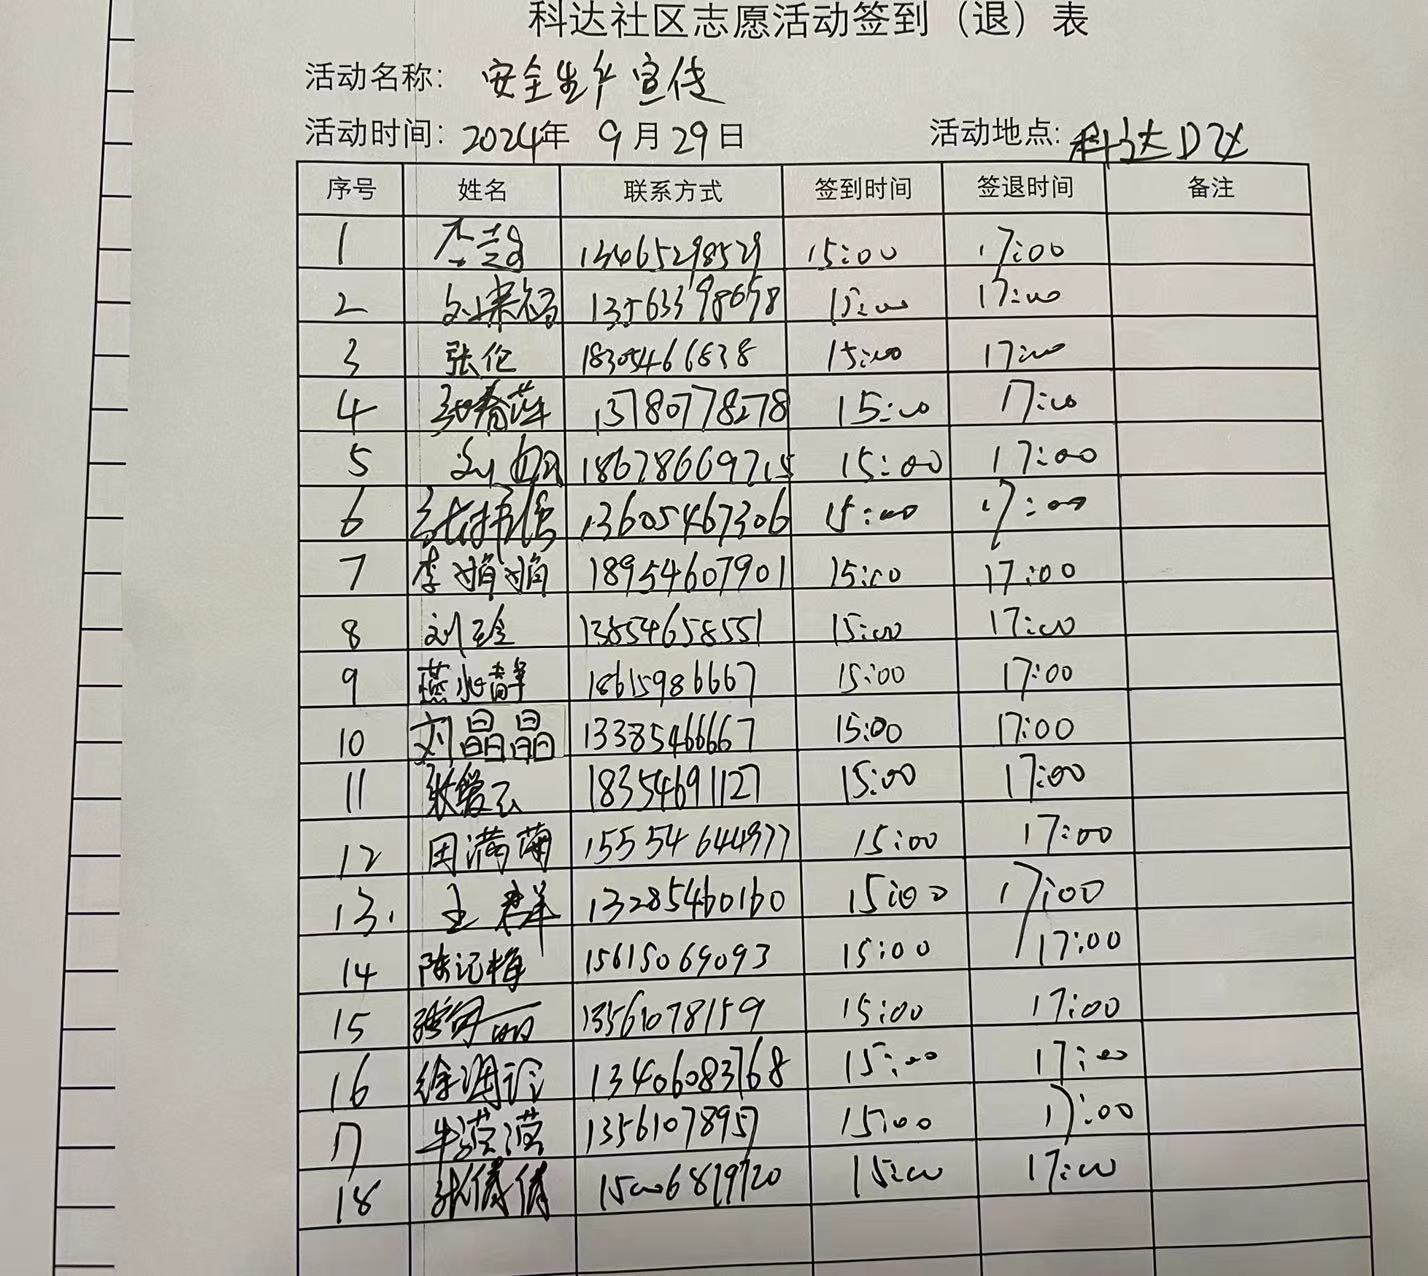 科达社区志愿活动签到（退）表
活动名称: 安全生产宣传
活动时间: 2024年 9月29日 活动地点: 科达D区
序号 姓名 联系方式 签到时间 签退时间 备注
1 13465298529 15:00 17:00
2 13563398658 15:00 17:00
3 张伦 18305466838 15:00 17:00
4 张春萍 13780778278 15:00 17:00
5 刘 18678669715 15:00 17:00
6 13605467306 15:00 17:00
7 李娟娟 18954607901 15:00 17:00
8 刘玲 13854658551 15:00 17:00
9 燕水群 18615986667 15:00 17:00
10 刘晶晶 13385466667 15:00 17:00
11 张爱云 18354691127 15:00 17:00
12 田满菊 15554644977 15:00 17:00
13. 王群 13285460160 15:00 17:00
14 陈记梅 15615069093 15:00 17:00
15 13561078159 15:00 17:00
16 徐润 13406083768 15:00 17:00
17 牛滢滢 13561078957 15:00 17:00
18 张倩倩 15006879720 15:00 17:00